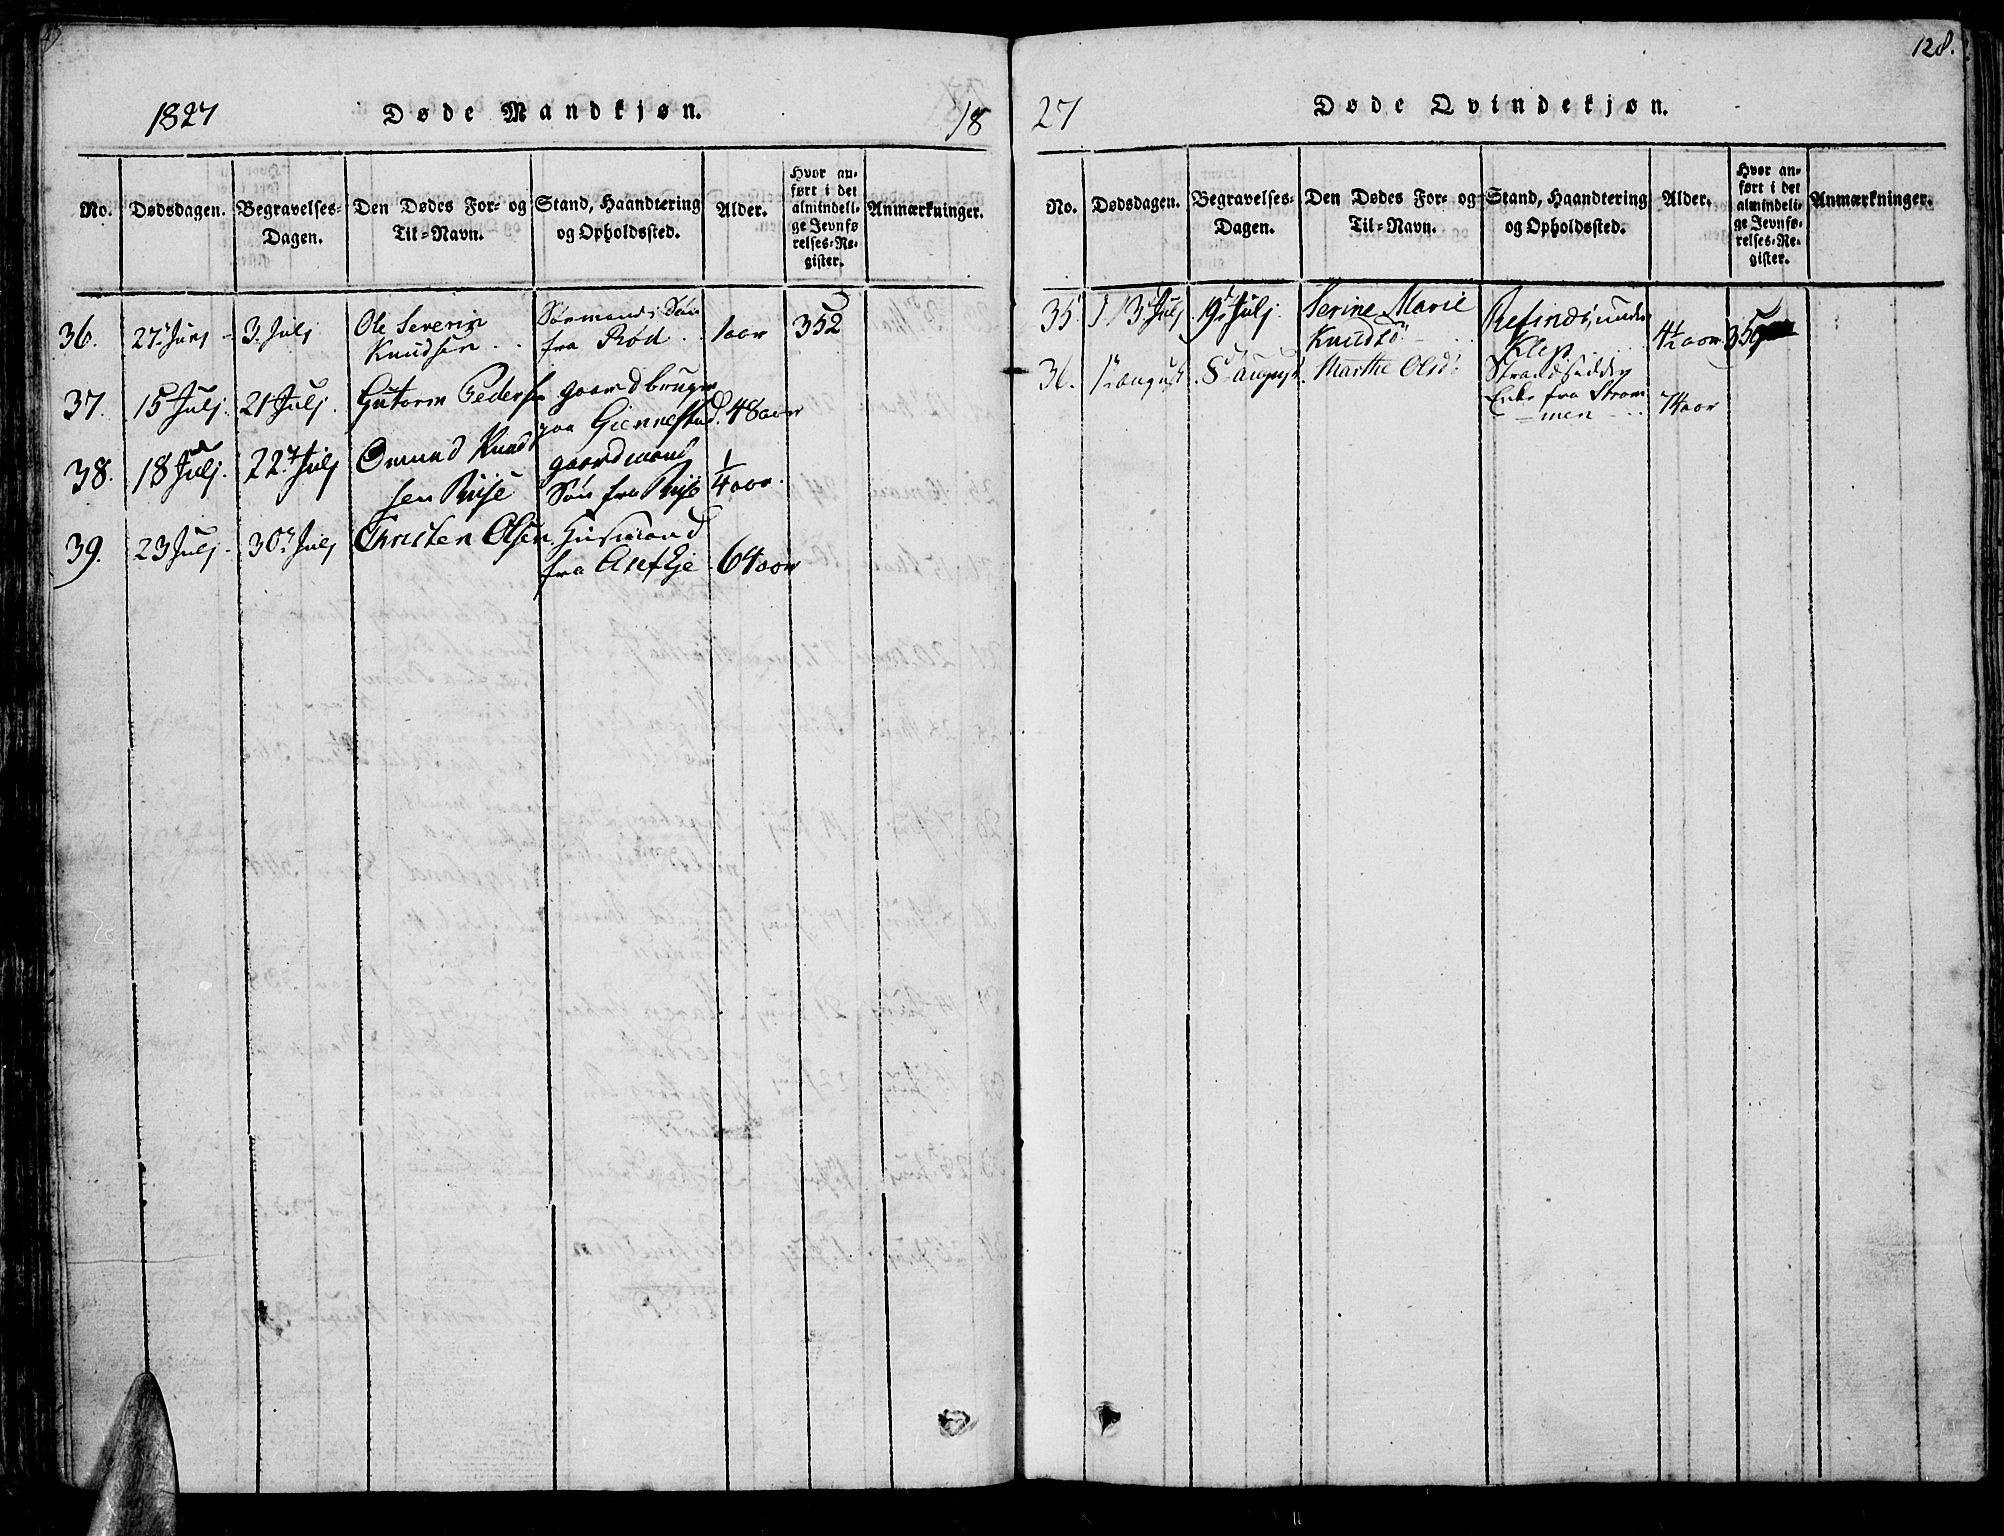 128.
1827 Døde Mandkjøn. 18
No. Dødsdagen. Begravelses-Dagen. Den Dødes For- og Til-Navn. Stand, Haandtering og Opholdssted. Alder. Hvor anført i det almindelige Jevnførelses-Register. Anmærkninger.
36. 27. Junj 3. Julj Ole Severin Sørmands Søn
Knudsen fra Rød 1 aar 352
37. 15 Julj. 21 Julj. Gutorm Peders gaardbruger
paa Giennestad. 48 aar
38. 18 Julj. 22 Julj Omund Knud gaardmand
sen Riise Søn fra Riise 1/4 aar.
39. 23 Julj. 30 Julj Christen Olsen Huusmand
fra 64 aar
27 Døde Qvindekjøn.
No. Dødsdagen. Begravelses-Dagen. Den Dødes For- og Til-Navn. Stand, Haandtering og Opholdssted. Alder. Hvor anført i det almindelige Jevnførelses-Register. Anmærkninger.
35. 13 Julj 19 Julj. Serine Marie under
Knudsd Klep 4 1/2 aar
36. august 8 august. Marthe Olsd Strandsidder
Enke fra Strom
men 74 aar